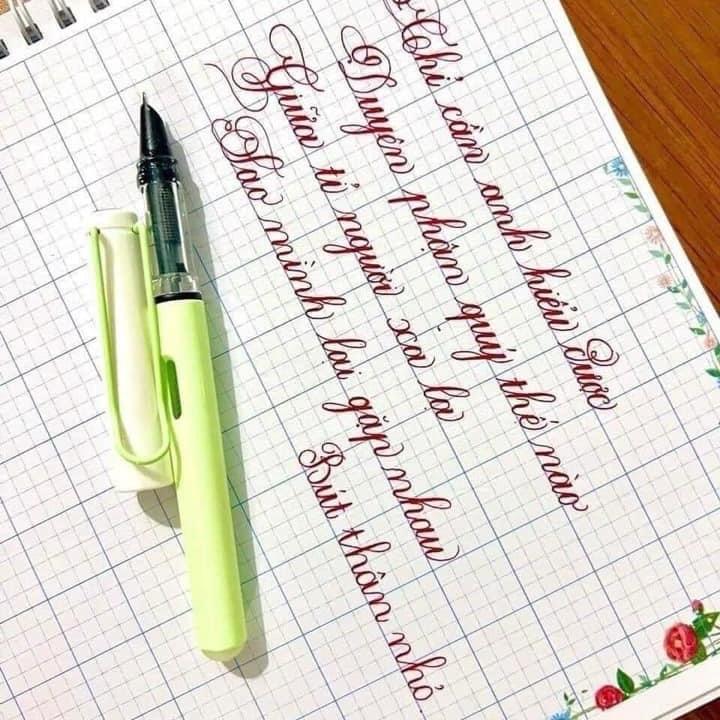 Chỉ cần anh hiểu được
Duyên phận quý thế nào
Giữa tỉ người xa lạ
Sao mình lại gặp nhau
Bút thân nhỏ